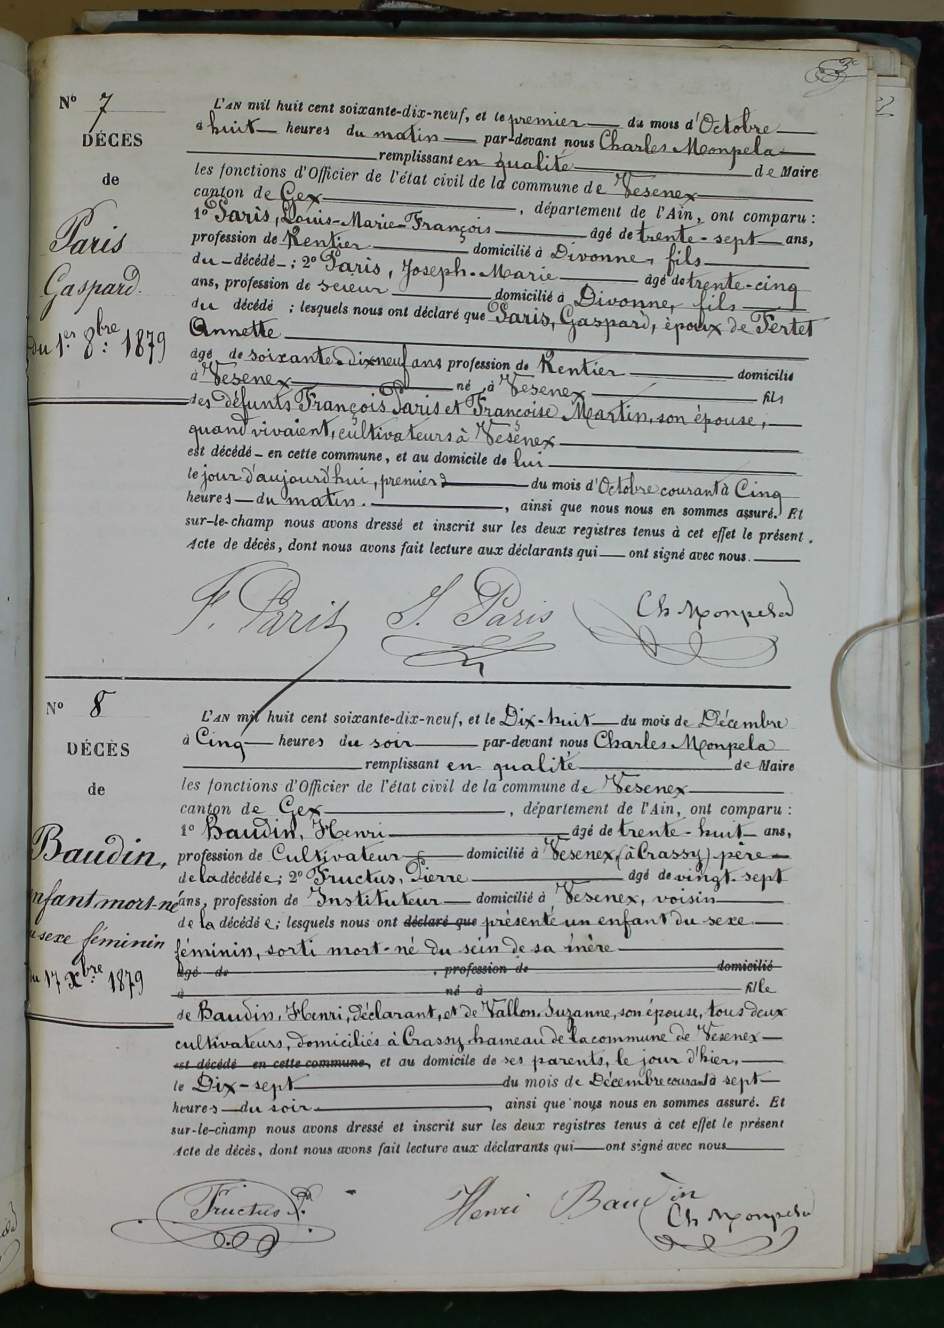 3e
N° 7
DÉCÈS
de
Paris
Gaspard.
du 1er 8bre 1879
L'AN mil huit cent soixante-dix-neuf, et le premier du mois d'Octobre
à huit heures du matin par-devant nous Charles Monpela
remplissant en qualité de Maire
les fonctions d'Officier de l'état civil de la commune de Vesenex
canton de Gex, département de l'Ain, ont comparu :
1° Paris, Louis-Marie-François âgé de trente-sept ans,
profession de Rentier domicilié à Divonne, fils
du décédé ; 2° Paris, Joseph-Marie âgé de trente-cinq
ans, profession de scieur domicilié à Divonne, fils
du décédé ; lesquels nous ont déclaré que Paris, Gaspard, époux de Fertet
Annette
âgé de soixante-dixneuf ans profession de Rentier domicilié
à Vesenex né à Vesenex fils
des défunts François Paris et Françoise Martin, son épouse,
quand vivaient, cultivateurs à Vesenex
est décédé en cette commune, et au domicile de lui
le jour d'aujourd'hui, premier du mois d'Octobre courant à Cinq
heures du matin. , ainsi que nous nous en sommes assuré. Et
sur-le-champ nous avons dressé et inscrit sur les deux registres tenus à cet effet le présent
Acte de décès, dont nous avons fait lecture aux déclarants qui ont signé avec nous.
F. Paris J. Paris Ch Monpela
N° 8
DÉCÈS
de
Baudin,
enfant mort-né
du sexe féminin
du 17 Xbre 1879
L'AN mil huit cent soixante-dix-neuf, et le Dix-huit du mois de Décembre
à Cinq heures du soir par-devant nous Charles Monpela
remplissant en qualité de Maire
les fonctions d'Officier de l'état civil de la commune de Vesenex
canton de Gex, département de l'Ain, ont comparu :
1° Baudin, Henri âgé de trente-huit ans,
profession de Cultivateur domicilié à Vesenex (à Crassy) père
de la décédée ; 2° Fructus, Pierre âgé de vingt-sept
ans, profession de Instituteur domicilié à Vesenex, voisin
de la décédée ; lesquels nous ont déclaré que présenté un enfant du sexe
féminin, sorti mort-né du sein de sa mère
âgé de , profession de domicilié
à né à fille
de Baudin, Henri, déclarant, et de Vallon Suzanne, son épouse, tous deux
cultivateurs, domiciliés à Crassy hameau de la commune de Vesenex
est décédé en cette commune, et au domicile de ses parents, le jour d'hier,
le Dix-sept du mois de Décembre courant à sept
heures du soir. , ainsi que nous nous en sommes assuré. Et
sur-le-champ nous avons dressé et inscrit sur les deux registres tenus à cet effet le présent
Acte de décès, dont nous avons fait lecture aux déclarants qui ont signé avec nous
Fructus P. Henri Baudin
Ch Monpela